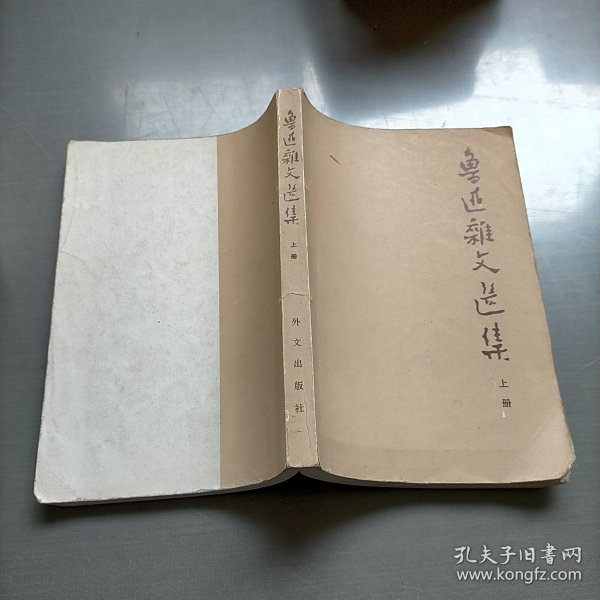 鲁迅雜文选集
上册
外文出版社
鲁迅雜文选集
上册
孔夫子旧书网
www.kongfz.com